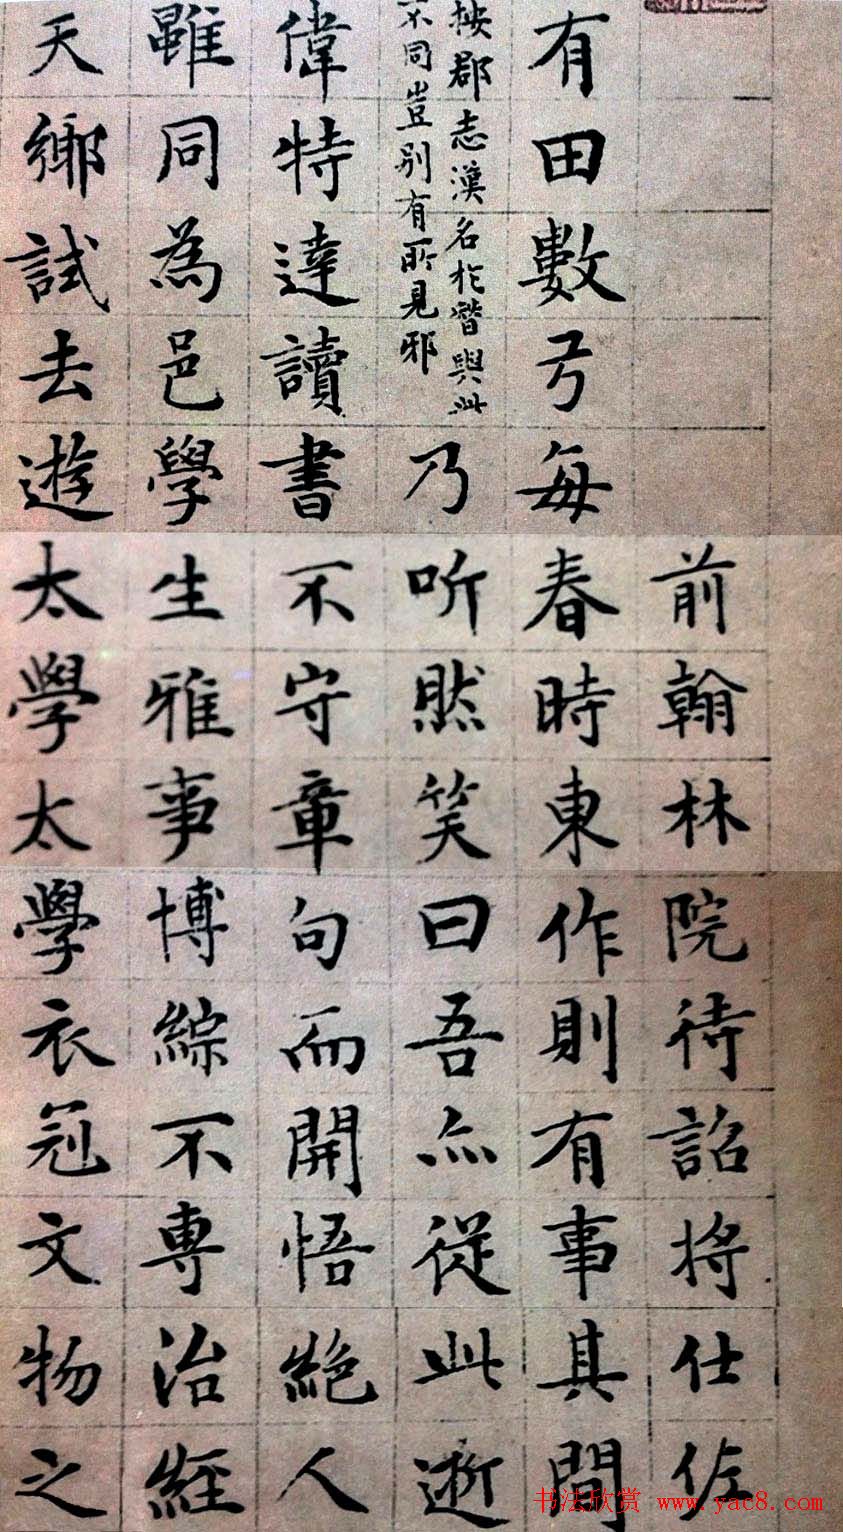 前翰林院待詔將仕佐
有田數弓每春時東作則有事其間
按郡志漢名於朁與此
不同豈别有所見邪
乃听然笑曰吾亦從此逝
偉特達讀書不守章句而開悟絕人
雖同為邑學生雅事博綜不專治經
天鄉試去遊太學太學衣冠文物之
书法欣赏 www.yac8.com